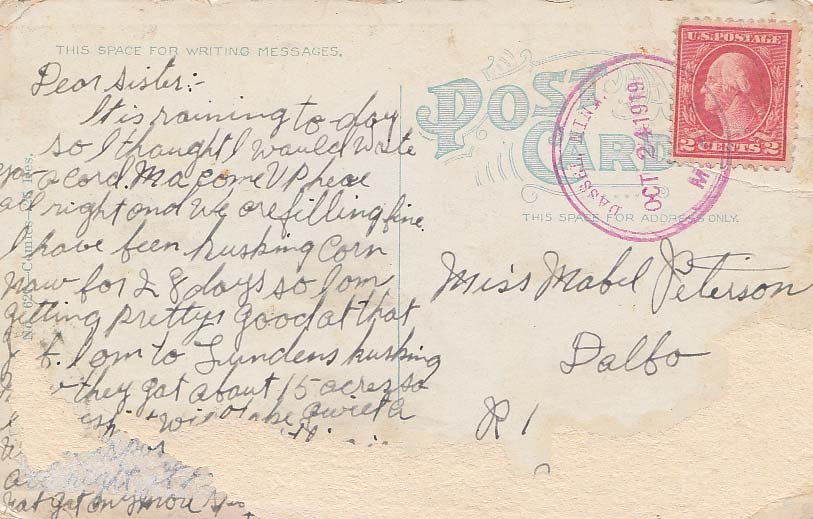 THIS SPACE FOR WRITING MESSAGES.
Dear Sister:-
It is raining to-day
so I thought I would write
you a cord. Ma come UP here
all right and we are filling fine.
I have been husking corn
now for 28 days so I am
getting prettys good at that
I am to Lundens husking
they got about 15 acres so
will take
all right
not got on y more
No. 62 Comics
POST CARD
THIS SPACE FOR ADDRESS ONLY.
U.S. POSTAGE
2 CENTS 2
DASSEL MINN.
OCT 24 1919
M
Miss Mabel Peterson
Dalbo
R 1